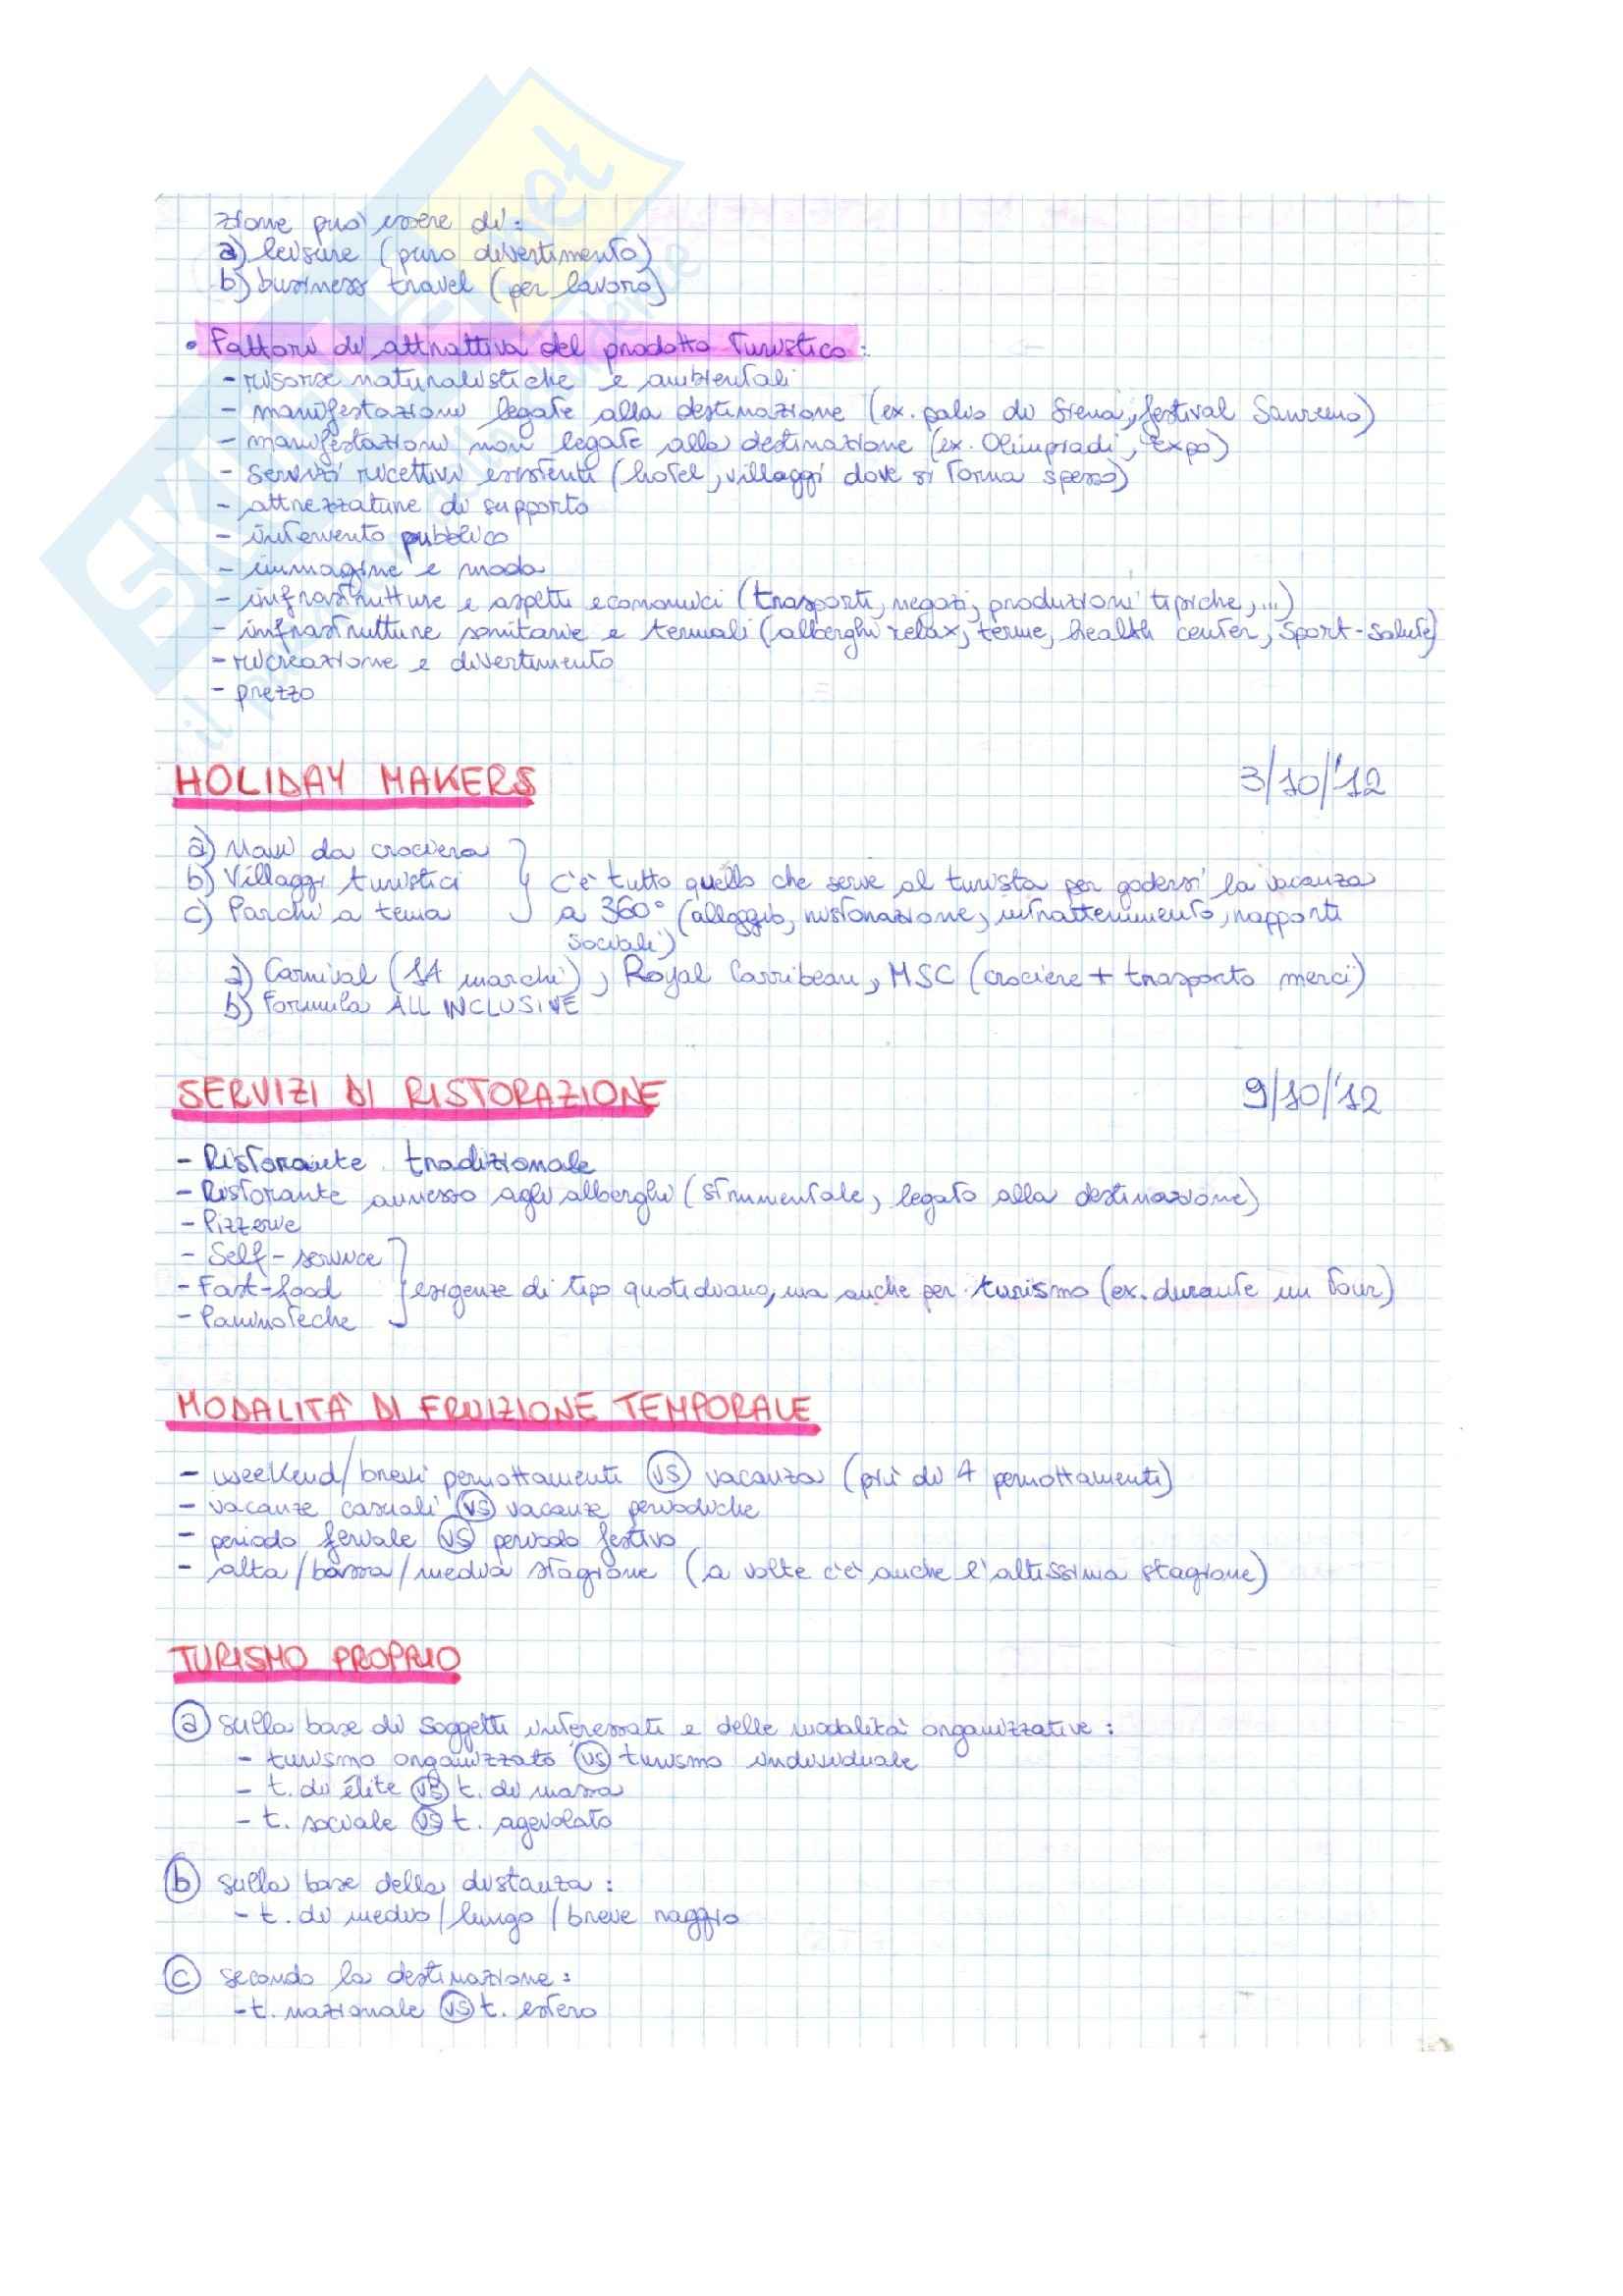 zione può essere di:
a) leisure (puro divertimento)
b) business travel (per lavoro)
• Fattori di attrattiva del prodotto turistico:
- risorse naturalistiche e ambientali
- manifestazioni legate alla destinazione (ex. palio di Siena, festival Sanremo)
- manifestazioni non legate alla destinazione (ex. Olimpiadi, expo)
- servizi ricettivi esistenti (hotel, villaggi dove si torna spesso)
- attrezzature di supporto
- intervento pubblico
- immagine e moda
- infrastrutture e aspetti economici (trasporti, negozi, produzioni tipiche, ...)
- infrastrutture sanitarie e termali (alberghi relax, terme, health center, sport-salute)
- ricreazione e divertimento
- prezzo
HOLIDAY MAKERS 3/10/'12
a) Navi da crociera
b) Villaggi turistici } c'è tutto quello che serve al turista per godersi la vacanza
c) Parchi a tema a 360° (alloggio, ristorazione, intrattenimento, rapporti
sociali)
a) Carnival (14 marchi), Royal Carribean, MSC (crociere + trasporto merci)
b) Formula ALL INCLUSIVE
SERVIZI DI RISTORAZIONE 9/10/'12
- Ristorante tradizionale
- Ristorante annesso agli alberghi (strumentale, legato alla destinazione)
- Pizzerie
- Self-service
- Fast-food } esigenze di tipo quotidiano, ma anche per turismo (ex. durante un tour)
- Paninoteche
MODALITÀ DI FRUIZIONE TEMPORALE
- weekend/brevi pernottamenti VS vacanza (più di 4 pernottamenti)
- vacanze casuali VS vacanze periodiche
- periodo feriale VS periodo festivo
- alta/bassa/media stagione (a volte c'è anche l'altissima stagione)
TURISMO PROPRIO
a) sulla base di soggetti interessati e delle modalità organizzative:
- turismo organizzato VS turismo individuale
- t. di élite VS t. di massa
- t. sociale VS t. agevolato
b) sulla base della distanza:
- t. di medio/lungo/breve raggio
c) secondo la destinazione:
- t. nazionale VS t. estero